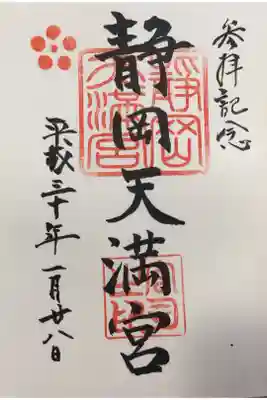 参拝記念
静岡天満宮
平成三十年一月廿八日
静岡
天満宮